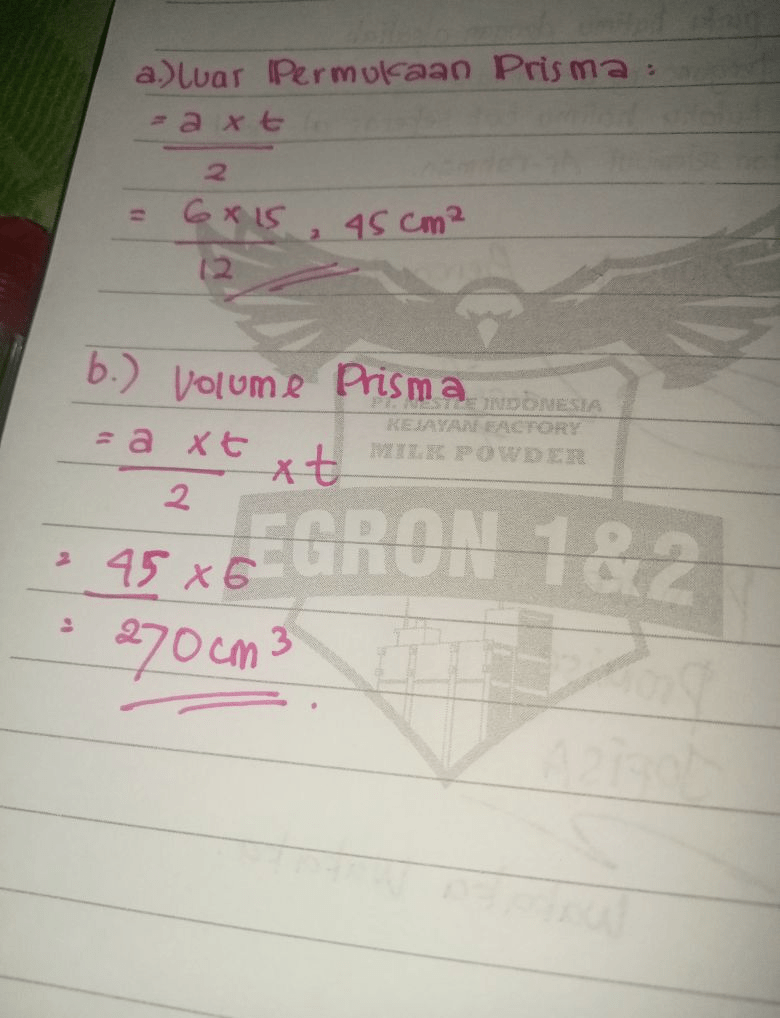 a.) Luar Permukaan Prisma :
= a x t
2
= 6 x 15 , 45 cm²
12
b.) Volume Prisma
= a x t x t
2
= 45 x 6
= 270 cm³
PT. NESTLE INDONESIA
KEJAYAN FACTORY
MILK POWDER
EGRON 1&2